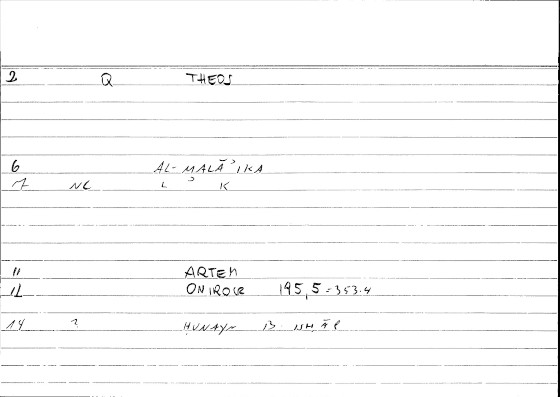 2 Q THEOS
6 AL-MALĀʾIKA
7 NC L ʾ K
11 ARTEM
12 ONIROCR 195,5=353.4
14 2 ḤUNAYN B ISḤĀQ